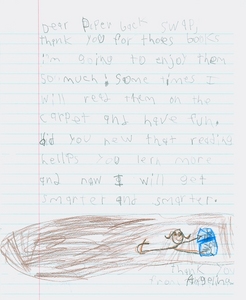 Dear Paper back Swap,
thank you for thoes books
I'm going to enjoy them
so much! Some times I
will read them on the
carpet and have fun.
did you new that reading
hellps you lern more
and now I will get
smarter and smarter.
Thank You
from, Angelina